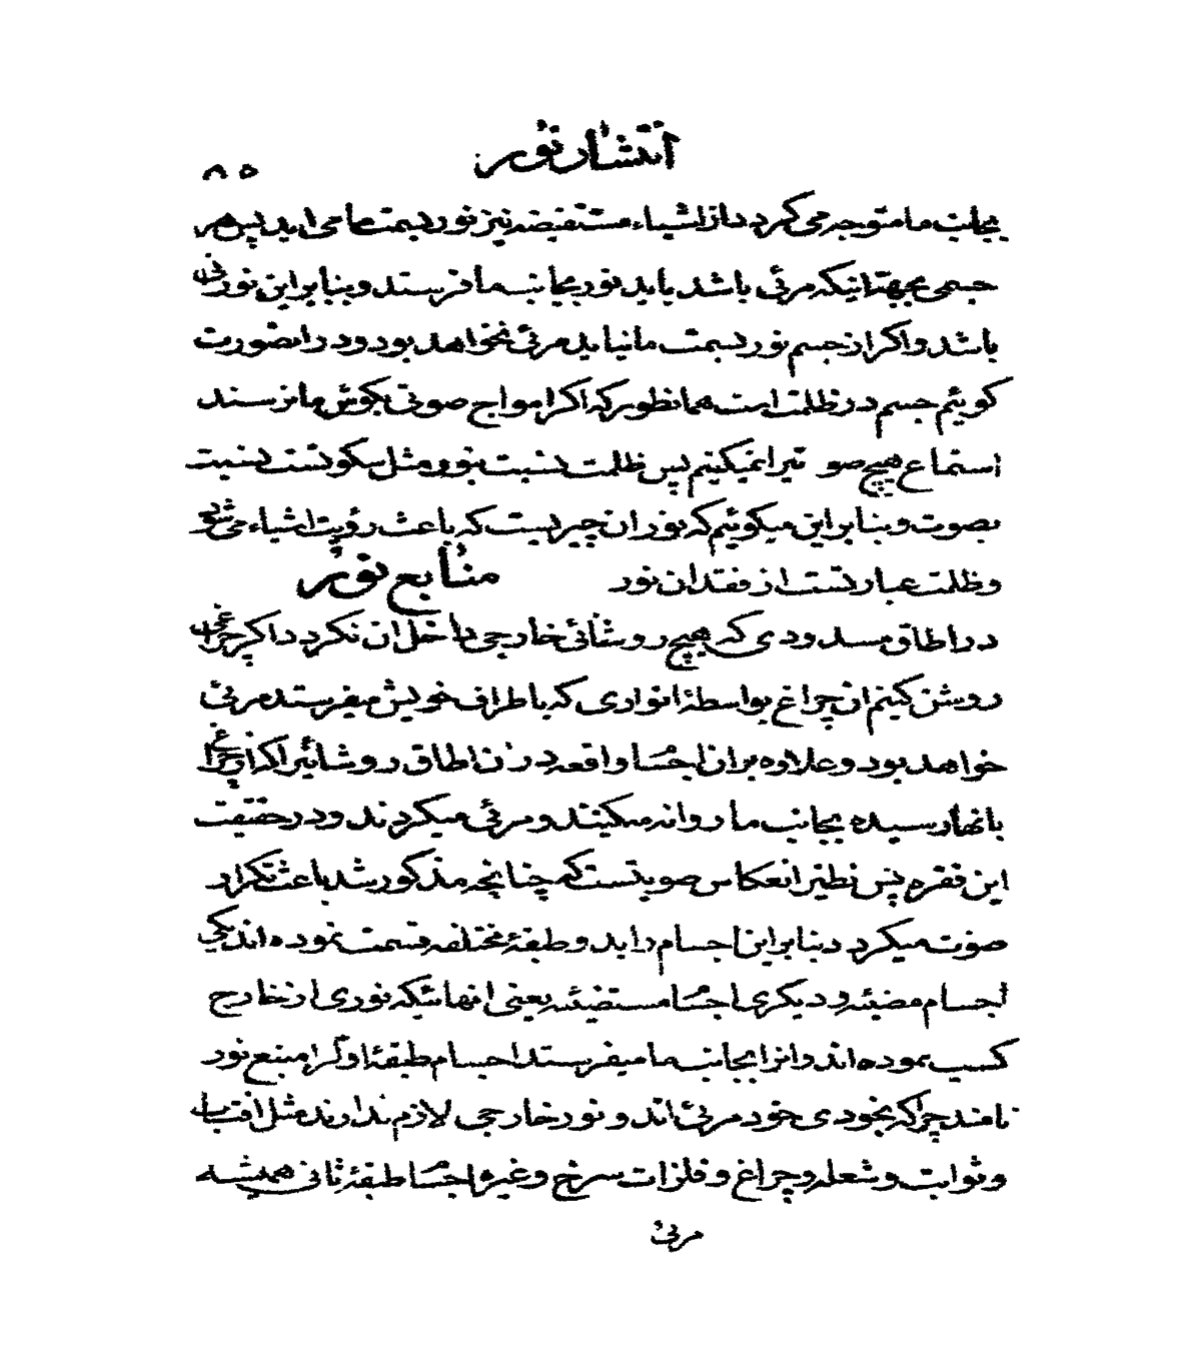 انتشار نور
۸۵
بجانب ما متوجه می کردد از اشیاء مستفیضه نیز نور بسمت ما می اید پس هر
جسمی بجهة انیکه مرئی باشد باید نور بجانب ما فرستد و بنا براین نورانی
باشد و اکر از جسم نور بسمت ما نیاید مرئی نخواهد بود و در انصورت
کوئیم جسم در ظلمت است همانطور که اکر امواج صوتی بکوش ما نرسند
استماع هیچ صوتیرا نمیکنیم پس ظلمت نسبت بنور مثل سکوتست نسبت
بصوت و بنا براین میکوئیم که نور ان چیزیست که باعث رؤیت اشیاء می شود
و ظلمت عبارتست از فقدان نور
منابع نور
در اطاق مسدودی که هیچ روشنائی خارجی داخل ان نکردد اکر چراغی
روشن کنیم ان چراغ بواسطهٔ انواری که باطراف خویش میفرستد مرئی
خواهد بود و علاوه بران اجسا واقعه در ان اطاق روشنائیرا که از چراغ
بانها رسیده بجانب ما روانه میکنند و مرئی میکردند و در حقیقت
این فقره پس نظیر انعکاس صوتست که چنانچه مذکور شد باعث تکرار
صوت میکردد بنا براین اجسام را بدو طبقهٔ مختلفه قسمت نموده اند یکی
اجسام مضیئه و دیکری اجسا مستضیئه یعنی انهائیکه نوری از خارج
کسب نموده اند و انرا بجانب ما میفرستد اجسام طبقهٔ اول را منبع نور
نامند چرا که بخودی خود مرئی اند و نور خارجی لازم ندارند مثل افتاب
و ثوابت و شعله و چراغ و فلزات سرخ و غیره اجسا طبقهٔ ثانی همیشه
مرئی